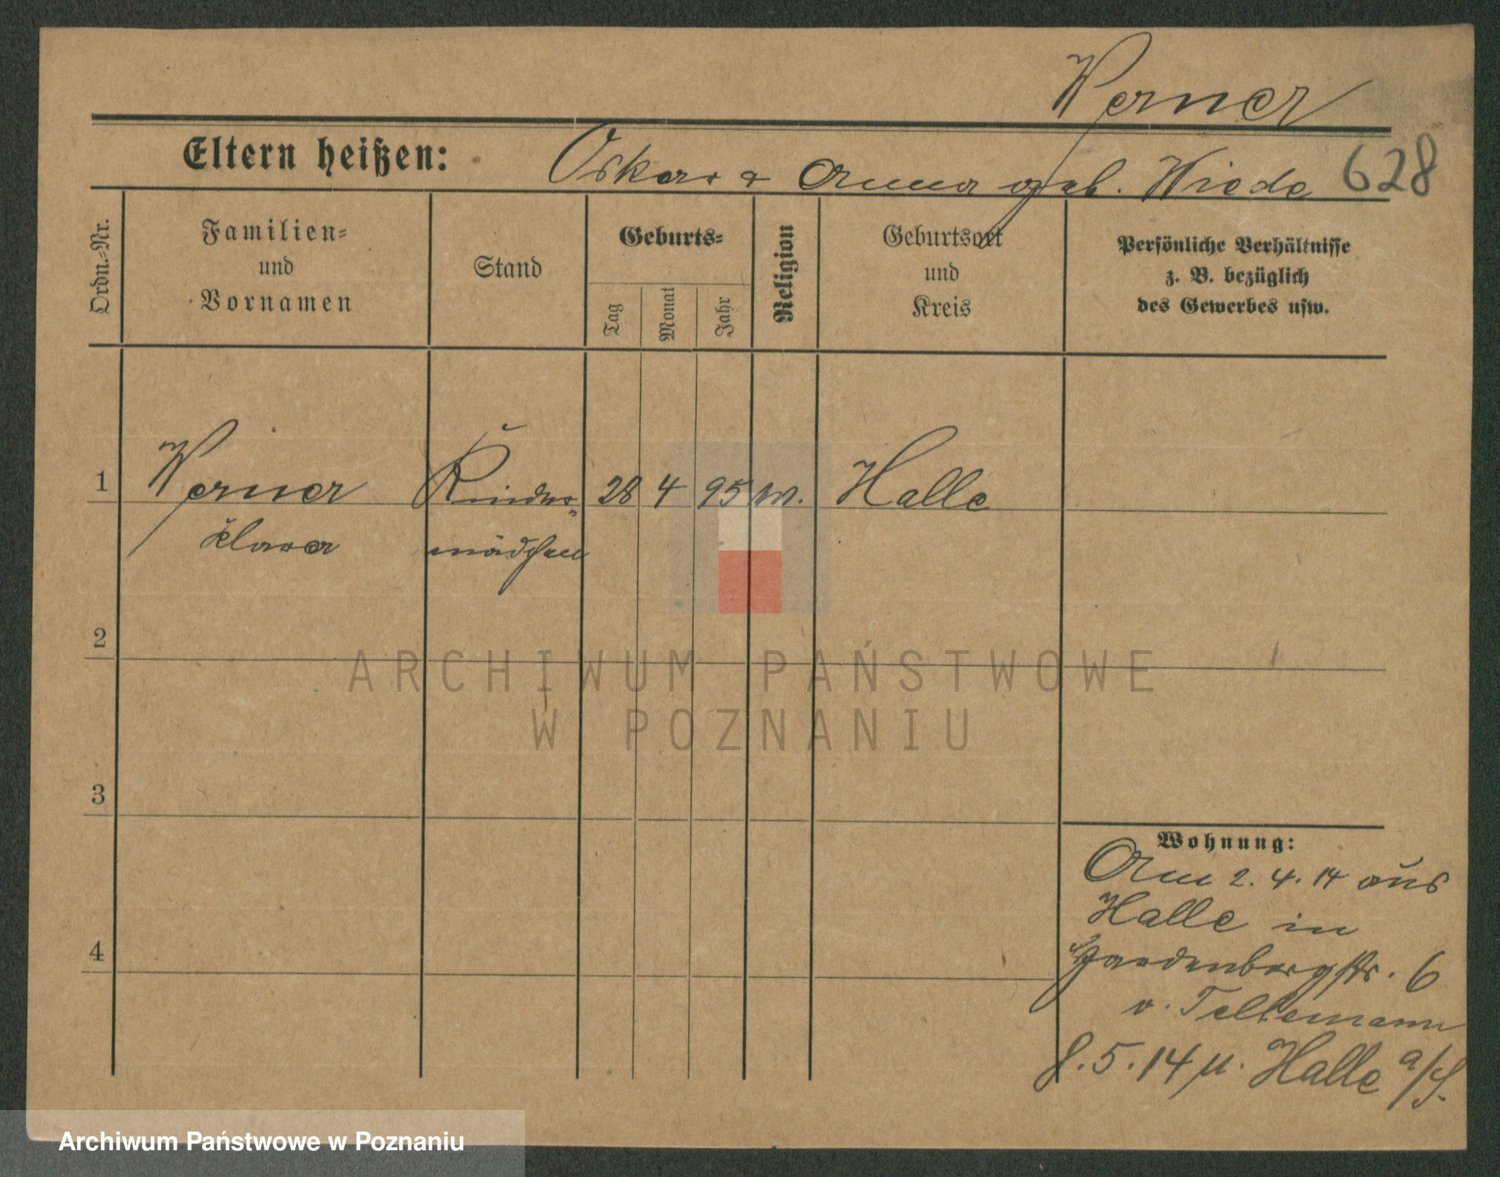 Werner
Eltern heißen: Oskar & Anna geb. Wiede 628
Ordn.-Nr.
Familien-
und
Vornamen
Stand
Geburts-
Tag
Monat
Jahr
Religion
Geburtsort
und
Kreis
Persönliche Verhältnisse
z. B. bezüglich
des Gewerbes usw.
1 Werner Kinder- 28 4 95 Halle
Klara mädchen
2
ARCHIWUM PAŃSTWOWE
W POZNANIU
3
Wohnung:
Am 2. 4. 14 aus
Halle in
4
Hardenbergstr. 6
v. Tellemann
8. 5. 14 n. Halle a/S.
Archiwum Państwowe w Poznaniu